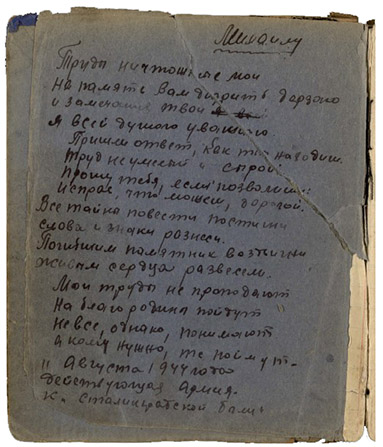 Михаилу
Труды ничтожные мои
На память Вам дарить дерзаю
и замечания твои
Я всей душою уважаю
Пришли ответ, как ты находишь
Труд неумелый и сырой
Прошу тебя, если позволишь
Исправь, что можешь, дорогой.
Все тайны повести постигни
слова и знаки разнеси.
Погибшим памятник воздвигни
живым сердца развесели.
Мои труды не пропадают
На благо родины пойдут
Не все, однако, понимают
А кому нужно, те поймут-
11 Августа 1944 года
Действующая Армия.
К. Сталинградской